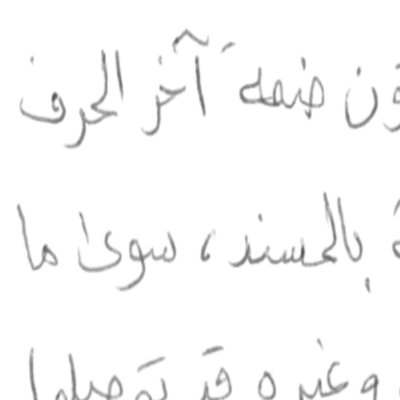 ضمه آخر الحرف
بالمسند، سوى ما
وغيره قد توصلها